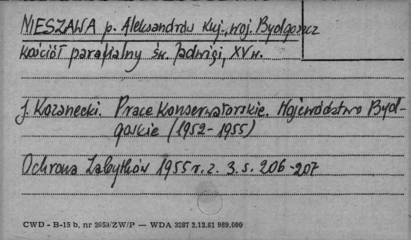 NIESZAWA p. Aleksandrów Kuj., woj. Bydgoszcz
kościół parafialny św. Jadwigi, XV w.
J. Kozanecki. Prace Konserwatorskie. Województwo Byd-
goskie (1952-1955)
Ochrona Zabytków 1955 r. z. 3. s. 206-207
CWD - B-15 b, nr 2653/ZW/P — WDA 3287 2.12.61 989.000